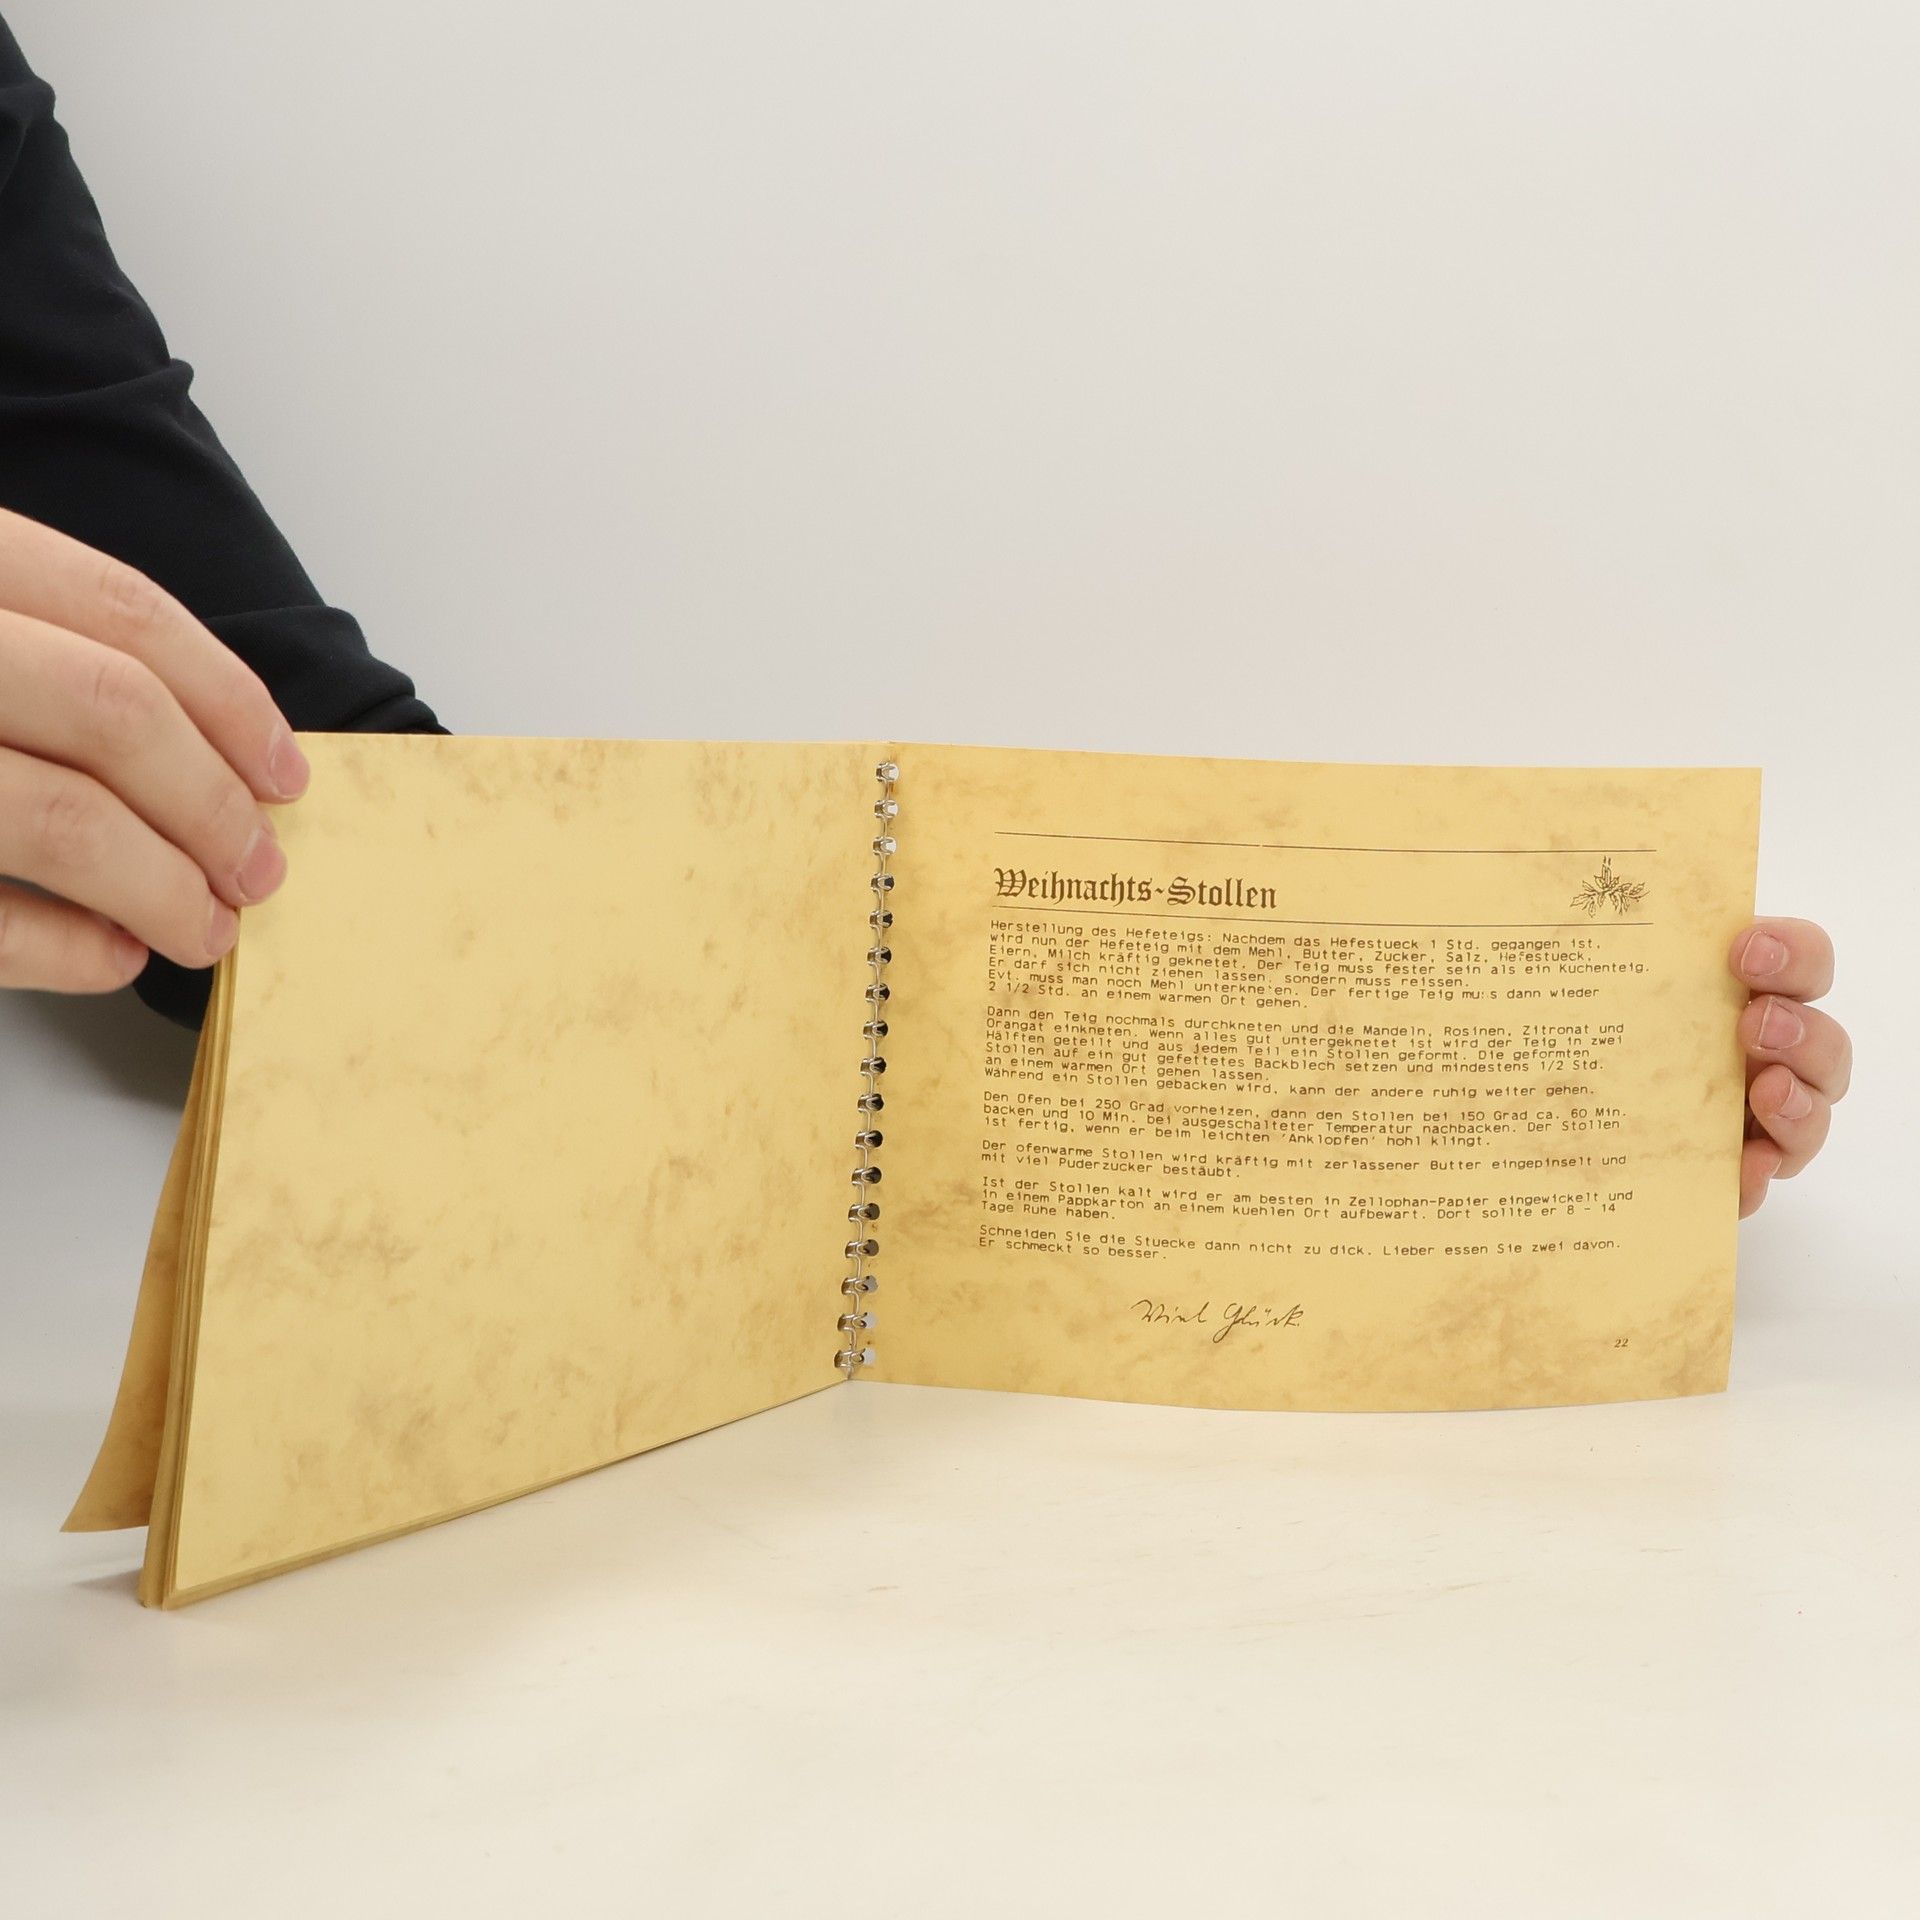 Weihnachts-Stollen
Herstellung des Hefeteigs: Nachdem das Hefestueck 1 Std. gegangen ist,
wird nun der Hefeteig mit dem Mehl, Butter, Zucker, Salz, Hefestueck,
Eiern, Milch kräftig geknetet. Der Teig muss fester sein als ein Kuchenteig.
Er darf sich nicht ziehen lassen, sondern muss reissen.
Evt. muss man noch Mehl unterkneten. Der fertige Teig muss dann wieder
2 1/2 Std. an einem warmen Ort gehen.
Dann den Teig nochmals durchkneten und die Mandeln, Rosinen, Zitronat und
Orangat einkneten. Wenn alles gut untergeknetet ist wird der Teig in zwei
Hälften geteilt und aus jedem Teil ein Stollen geformt. Die geformten
Stollen auf ein gut gefettetes Backblech setzen und mindestens 1/2 Std.
an einem warmen Ort gehen lassen.
Während ein Stollen gebacken wird, kann der andere ruhig weiter gehen.
Den Ofen bei 250 Grad vorheizen, dann den Stollen bei 150 Grad ca. 60 Min.
backen und 10 Min. bei ausgeschalteter Temperatur nachbacken. Der Stollen
ist fertig, wenn er beim leichten 'Anklopfen' hohl klingt.
Der ofenwarme Stollen wird kräftig mit zerlassener Butter eingepinselt und
mit viel Puderzucker bestäubt.
Ist der Stollen kalt wird er am besten in Zellophan-Papier eingewickelt und
in einem Pappkarton an einem kuehlen Ort aufbewart. Dort sollte er 8 - 14
Tage Ruhe haben.
Schneiden Sie die Stuecke dann nicht zu dick. Lieber essen Sie zwei davon.
Er schmeckt so besser.
Viel Glück.
22